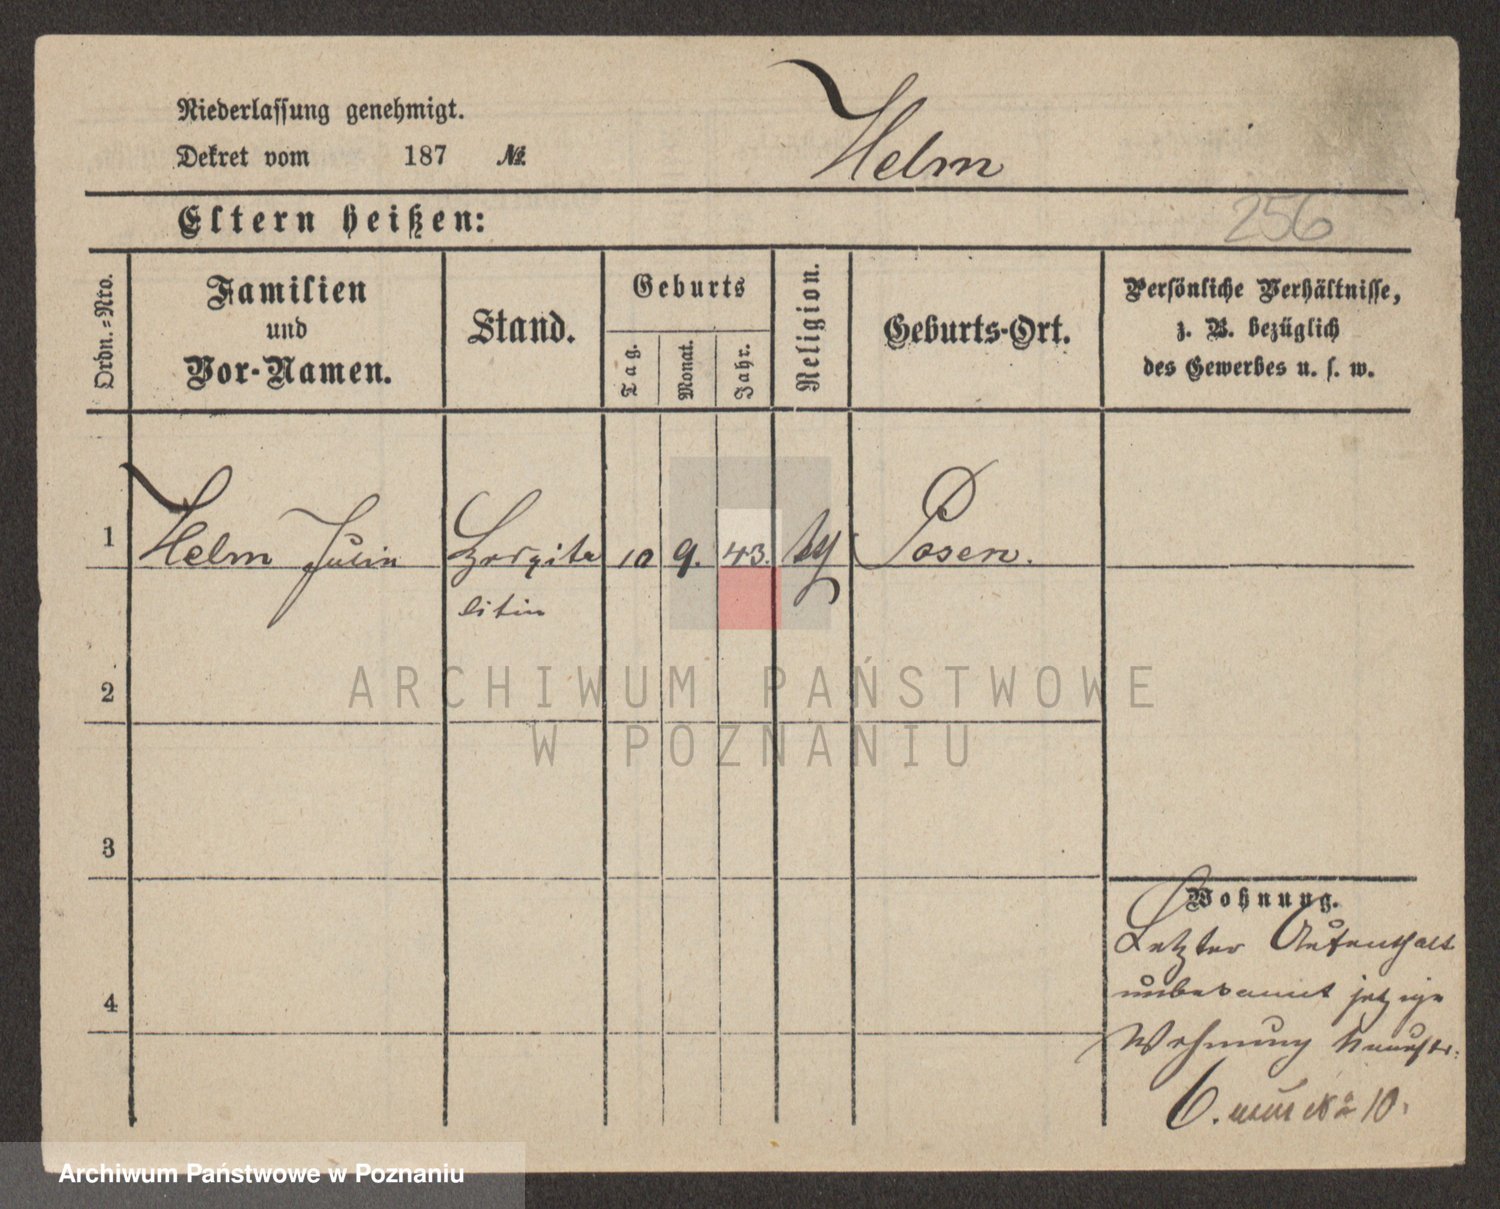 Niederlassung genehmigt.
Dekret vom 187 №
Helm
Eltern heißen:
256
Ordn.=Nro.
Familien
und
Vor-Namen.
Stand.
Geburts
Tag.
Monat.
Jahr.
Religion.
Geburts-Ort.
Persönliche Verhältnisse,
z. B. bezüglich
des Gewerbes u. s. w.
1 Helm 10 9. 43. Posen.
litin
2
ARCHIWUM PAŃSTWOWE
W POZNANIU
3
Wohnung.
Letzter Aufenthalt
unbekannt jetzige
4
Wohnung
6. 10.
Archiwum Państwowe w Poznaniu